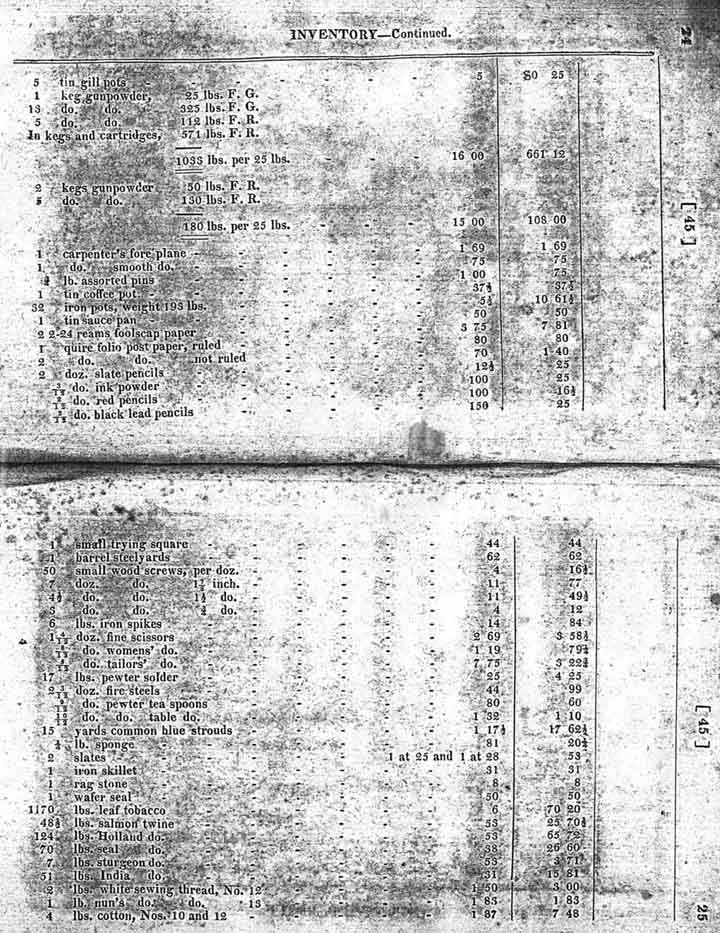 INVENTORY—Continued.
24
5 tin gill pots - - - - - - 5 $0 25
1 keg gunpowder, 25 lbs. F. G.
13 do. do. 325 lbs. F. G.
5 do. do. 112 lbs. F. R.
In kegs and cartridges, 571 lbs. F. R.
1033 lbs. per 25 lbs. - - - 16 00 661 12
2 kegs gunpowder 50 lbs. F. R.
5 do. do. 130 lbs. F. R.
180 lbs. per 25 lbs. - - - 15 00 108 00
1 carpenter's fore plane - - - - - - 1 69 1 69
1 do. smooth do. - - - - - - 75 75
lb. assorted pins - - - - - - 1 00 75
1 tin coffee pot - - - - - - 37½ 37½
32 iron pots, weight 193 lbs. - - - - - 5½ 10 61½
1 tin sauce pan - - - - - - 50 50
2 2-24 reams foolscap paper - - - - - 3 75 7 81
1 quire folio post paper, ruled - - - - - 80 80
2 do. do. not ruled - - - - - 70 1 40
2 doz. slate pencils - - - - - - 12½ 25
3/12 do. ink powder - - - - - - 100 25
2/12 do. red pencils - - - - - - 100 16½
2/12 do. black lead pencils - - - - - 150 25
[ 45 ]
1 small trying square - - - - - - 44 44
1 barrel steelyards - - - - - - 62 62
50 small wood screws, per doz. - - - - - 4 16½
7 doz. do. 1½ inch. - - - - - 11 77
4½ do. do. 1½ do. - - - - - 11 49½
3 do. do. ¾ do. - - - - - 4 12
6 lbs. iron spikes - - - - - - 14 84
1 4/12 doz. fine scissors - - - - - - 2 69 3 58½
8/12 do. womens' do. - - - - - - 1 19 79½
5/12 do. tailors' do. - - - - - - 7 75 3 22½
17 lbs. pewter solder - - - - - - 25 4 25
2 3/12 doz. fire steels - - - - - - 44 99
9/12 do. pewter tea spoons - - - - - 80 60
10/12 do. do. table do. - - - - - 1 32 1 10
15 yards common blue strouds - - - - - 1 17½ 17 62½
¼ lb. sponge - - - - - - 81 20½
2 slates - - - - 1 at 25 and 1 at 28 53
1 iron skillet - - - - - - 31 31
1 rag stone - - - - - - 8 8
1 wafer seal - - - - - - 50 50
1170 lbs. leaf tobacco - - - - - - 6 70 20
48½ lbs. salmon twine - - - - - - 53 25 70½
124 lbs. Holland do. - - - - - - 53 65 72
70 lbs. seal do. - - - - - - 38 26 60
7 lbs. sturgeon do. - - - - - - 53 3 71
51 lbs. India do. - - - - - - 31 15 81
2 lbs. white sewing thread, No. 12 - - - - 1 50 3 00
1 lb. nun's do. do. 13 - - - - 1 83 1 83
4 lbs. cotton, Nos. 10 and 12 - - - - - 1 87 7 48
4
[ 45 ]
25